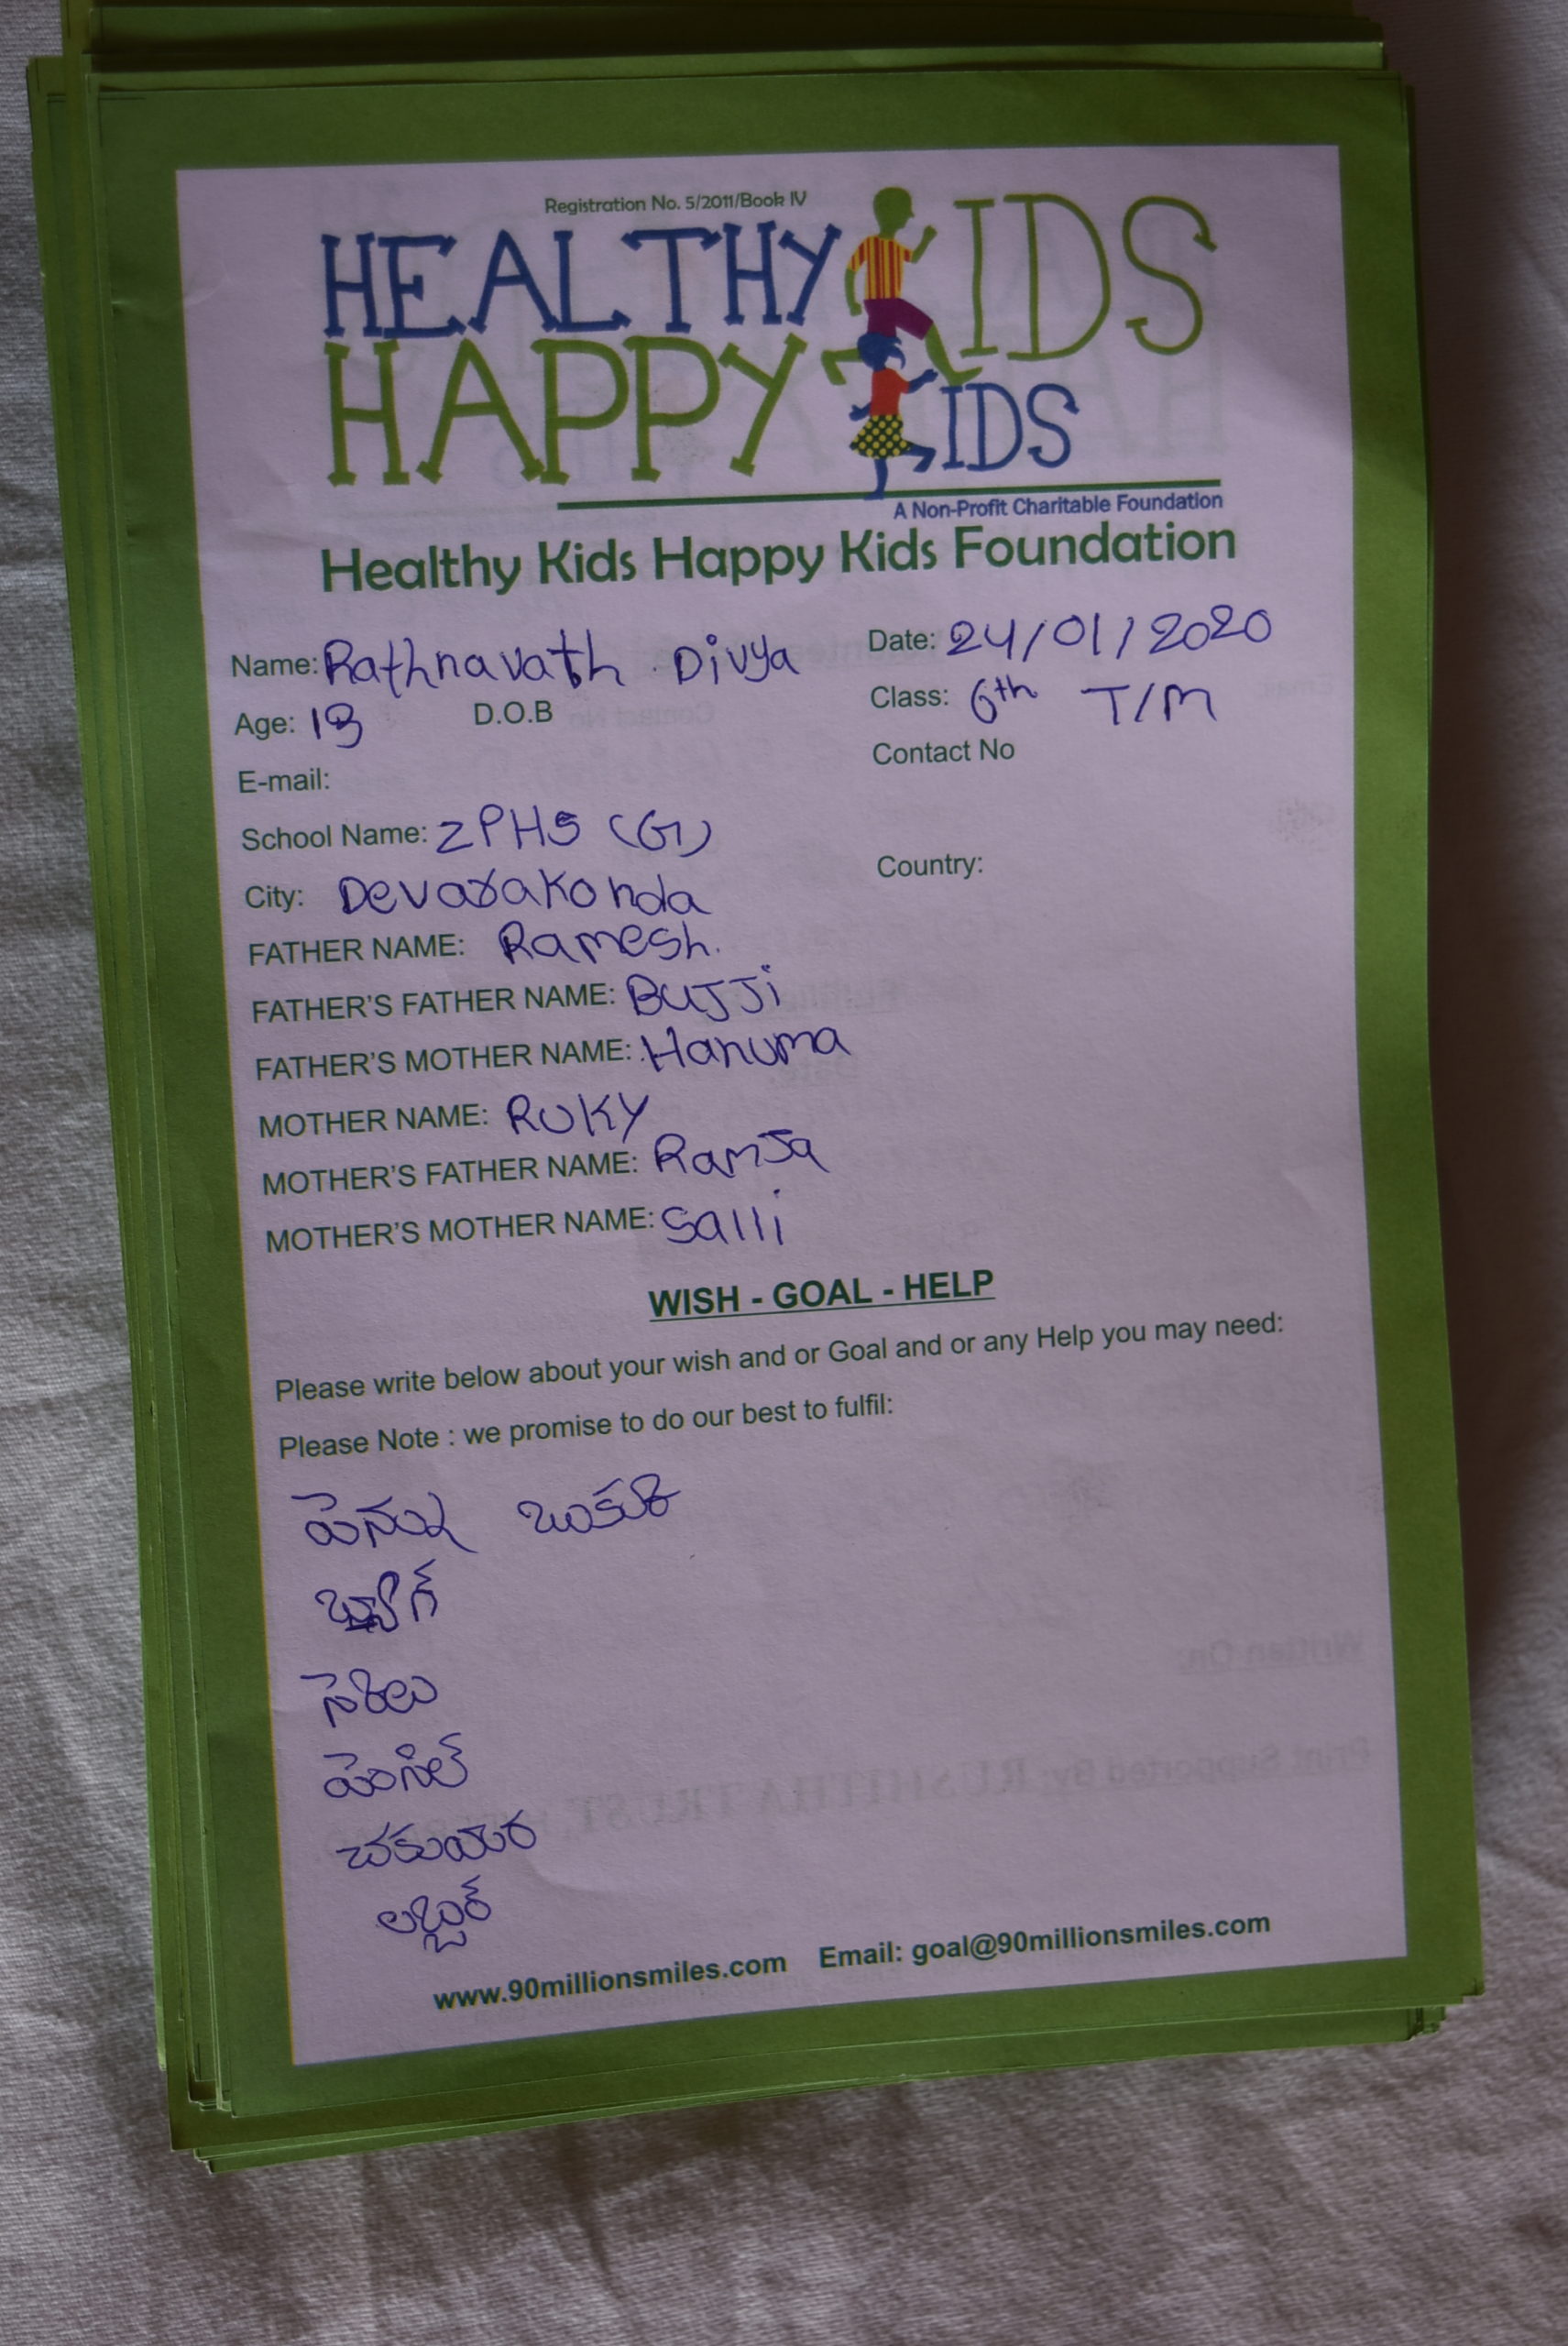 Registration No. 5/2011/Book IV
HEALTHY KIDS
HAPPY KIDS
A Non-Profit Charitable Foundation
Healthy Kids Happy Kids Foundation
Name: Rathnavath . Divya Date: 24/01/2020
Age: 13 D.O.B Class: 6th T/M
E-mail: Contact No
School Name: ZPHS (G)
City: Devarakonda Country:
FATHER NAME: Ramesh.
FATHER'S FATHER NAME: BUJJi
FATHER'S MOTHER NAME: Hanuma
MOTHER NAME: RUKY
MOTHER'S FATHER NAME: RamJa
MOTHER'S MOTHER NAME: Salli
WISH - GOAL - HELP
Please write below about your wish and or Goal and or any Help you may need:
Please Note : we promise to do our best to fulfil:
పెన్ను
బ్యాగ్
పెంసిల్
లబ్బర్
www.90millionsmiles.com Email: goal@90millionsmiles.com